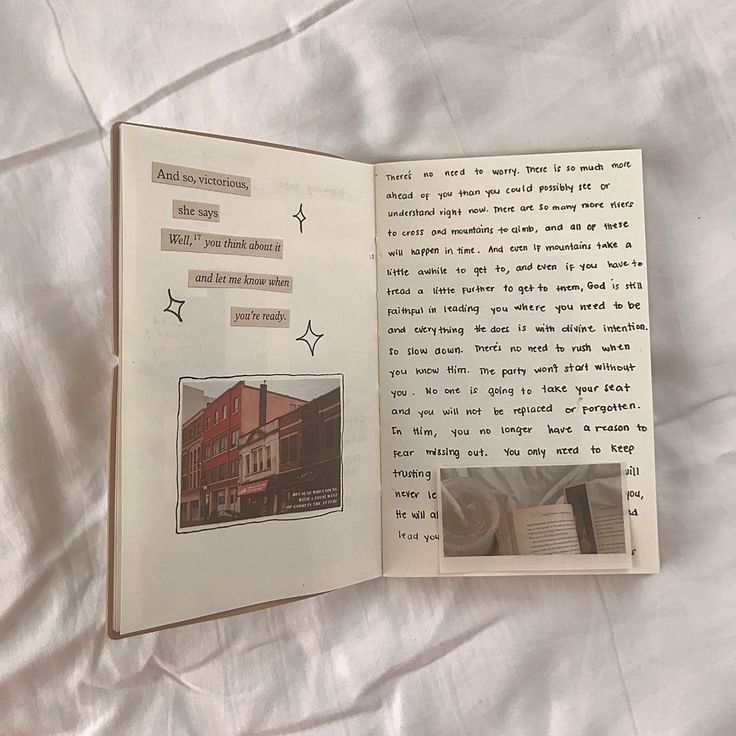 And so, victorious,
she says
Well,17 you think about it
and let me know when
you're ready.
BECAUSE WHEN YOUNG
OF GOOD IN THE FUTURE
There's no need to worry. There is so much more
ahead of you than you could possibly see or
understand right now. There are so many more rivers
to cross and mountains to climb, and all of these
will happen in time. And even if mountains take a
little awhile to get to, and even if you have to
tread a little further to get to them, God is still
faithful in leading you where you need to be
and everything He does is with divine intention.
So slow down. There's no need to rush when
you know Him. The party won't start without
you. No one is going to take your seat
and you will not be replaced or forgotten.
In Him, you no longer have a reason to
fear missing out. You only need to keep
trusting will
never le you,
He will al
lead you